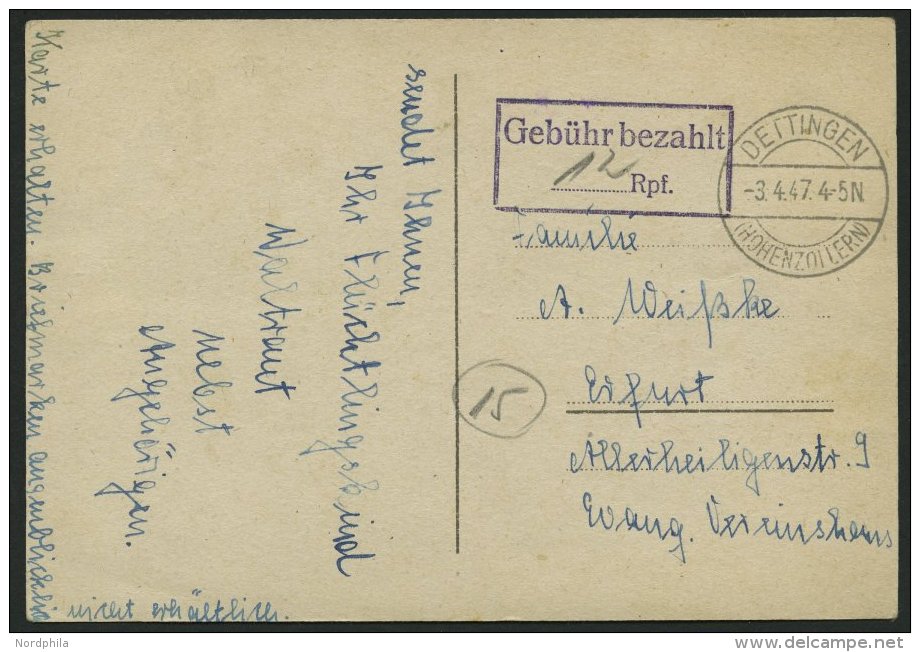 sendet Ihnen,
Ihr Flüchtlingskind
Waltraut
nebst
Angehörigen.
Karte erhalten. Briefmarken augenblicklich
nicht erhältlich.
Gebühr bezahlt
12 Rpf.
DETTINGEN
-3.4.47.4-5N.
(HOHENZOLLERN)
Familie
A. Weißke
Erfurt
15
Allerheiligenstr. 9
Evang. Vereinshaus
Nordphila
www.delcampe.net